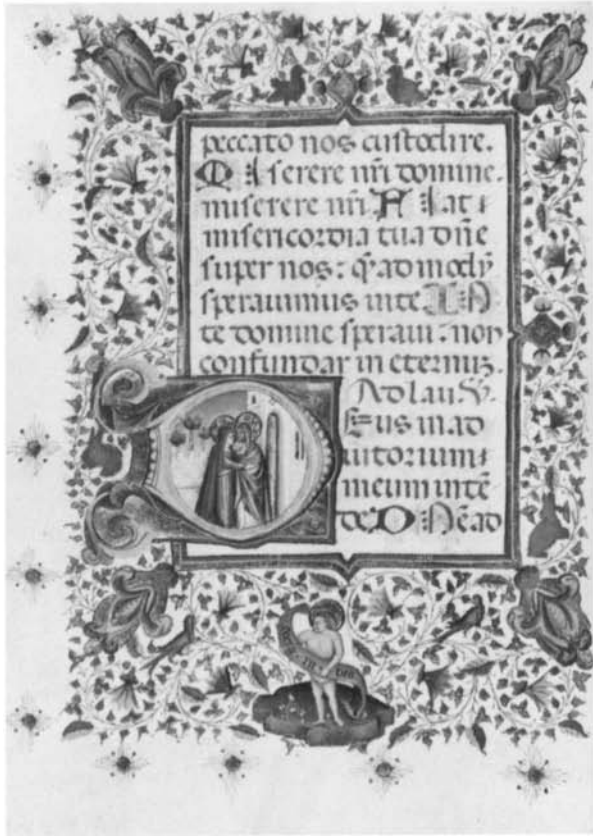 peccato nos custodire.
Miserere nr̃i domine.
miserere nr̃i. Fiat
misericordia tua dñe
super nos: q̃ad modũ
sperauimus in te. In
te domine speraui: non
confundar in eternuz.
Ad lau
Deus in ad
iutorium
meum intẽ
de Dñe ad